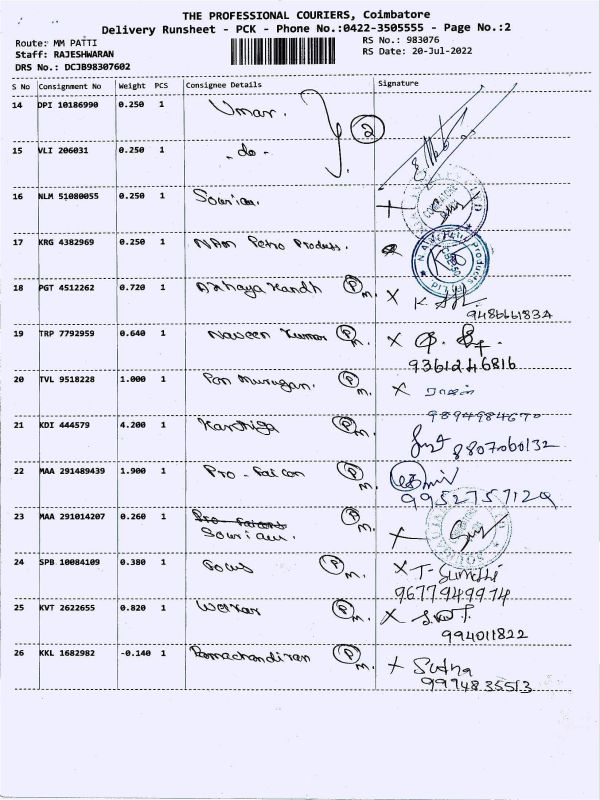 THE PROFESSIONAL COURIERS, Coimbatore
Delivery Runsheet - PCK - Phone No.:0422-3505555 - Page No.:2
Route: MM PATTI RS No.: 983076
Staff: RAJESHWARAN RS Date: 20-Jul-2022
DRS No.: DCJB98307602
S No Consignment No Weight PCS Consignee Details Signature
14 DPI 10186990 0.250 1 Umar. 2
15 VLI 206031 0.250 1 - do -
16 NLM 51080055 0.250 1
17 KRG 4382969 0.250 1 NAM Petro Products.
18 PGT 4512262 0.720 1 P M.
948666183A
19 TRP 7792959 0.640 1 Naveen Kumar P M.
9361246816
20 TVL 9518228 1.000 1 Pon Murugan. P M.
9894984670
21 KDI 444579 4.200 1 Karthiga P M.
8807060132
22 MAA 291489439 1.900 1 Pro-Falcon P M.
23 MAA 291014207 0.260 1 P M.
24 SPB 10084109 0.380 1 Focus P M. T-Sumathi
9677949974
25 KVT 2622655 0.820 1 P M.
994011822
26 KKL 1682982 -0.140 1 Ramachandiran P M.
9994835513